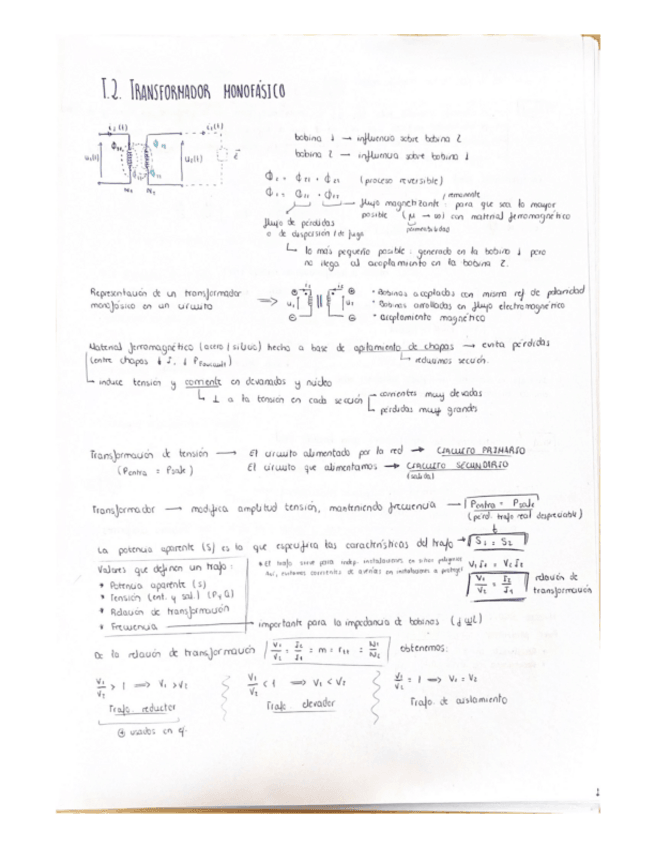 T.2. TRANSFORMADOR MONOFÁSICO
i₁(t)
i₂(t)
u₁(t)
u₂(t)
N₁ N₂
bobina 1 → influencia sobre bobina 2
bobina 2 → influencia sobre bobina 1
(proceso reversible)
flujo magnetizante : para que sea lo mayor
posible (μ → ∞) con material ferromagnético
permeabilidad
flujo de pérdidas
o de dispersión / de fuga
lo más pequeño posible : generado en la bobina 1 pero
no llega al acoplamiento en la bobina 2.
Representación de un transformador
monofásico en un circuito
• Bobinas acopladas con misma ref de polaridad
• Bobinas arrolladas en flujo electromagnético
• acoplamiento magnético
Material ferromagnético (acero / silicio) hecho a base de apilamiento de chapas → evita pérdidas
(entre chapas ↓ I, ↓ P Foucault)
reducimos sección.
induce tensión y corriente en devanados y núcleo
⊥ a la tensión en cada sección
corrientes muy elevadas
pérdidas muy grandes
Transformación de tensión → El circuito alimentado por la red → CIRCUITO PRIMARIO
(Pentra = Psale)
El circuito que alimentamos → CIRCUITO SECUNDARIO
(salida)
Transformador → modifica amplitud tensión, manteniendo frecuencia → Pentra = Psale
(pérd. trafo real despreciable)
La potencia aparente (S) es la que especifica las características del trafo → S₁ = S₂
Valores que definen un trafo :
* Potencia aparente (S)
* Tensión (ent. y sal.)
* Relación de transformación
* Frecuencia → importante para la impedancia de bobinas (jωL)
* El trafo sirve para indep. instalaciones en
Así, evitamos corrientes de averías en instalaciones a proteger
V₁I₁ = V₂I₂
V₁/V₂ = I₂/I₁
relación de
transformación
De la relación de transformación V₁/V₂ = I₂/I₁ = m = rₜₜ = N₁/N₂ obtenemos:
V₁/V₂ > 1 ⟹ V₁ > V₂
Trafo reductor
⊕ usados en
V₁/V₂ < 1 ⟹ V₁ < V₂
Trafo elevador
V₁/V₂ = 1 ⟹ V₁ = V₂
Trafo de aislamiento